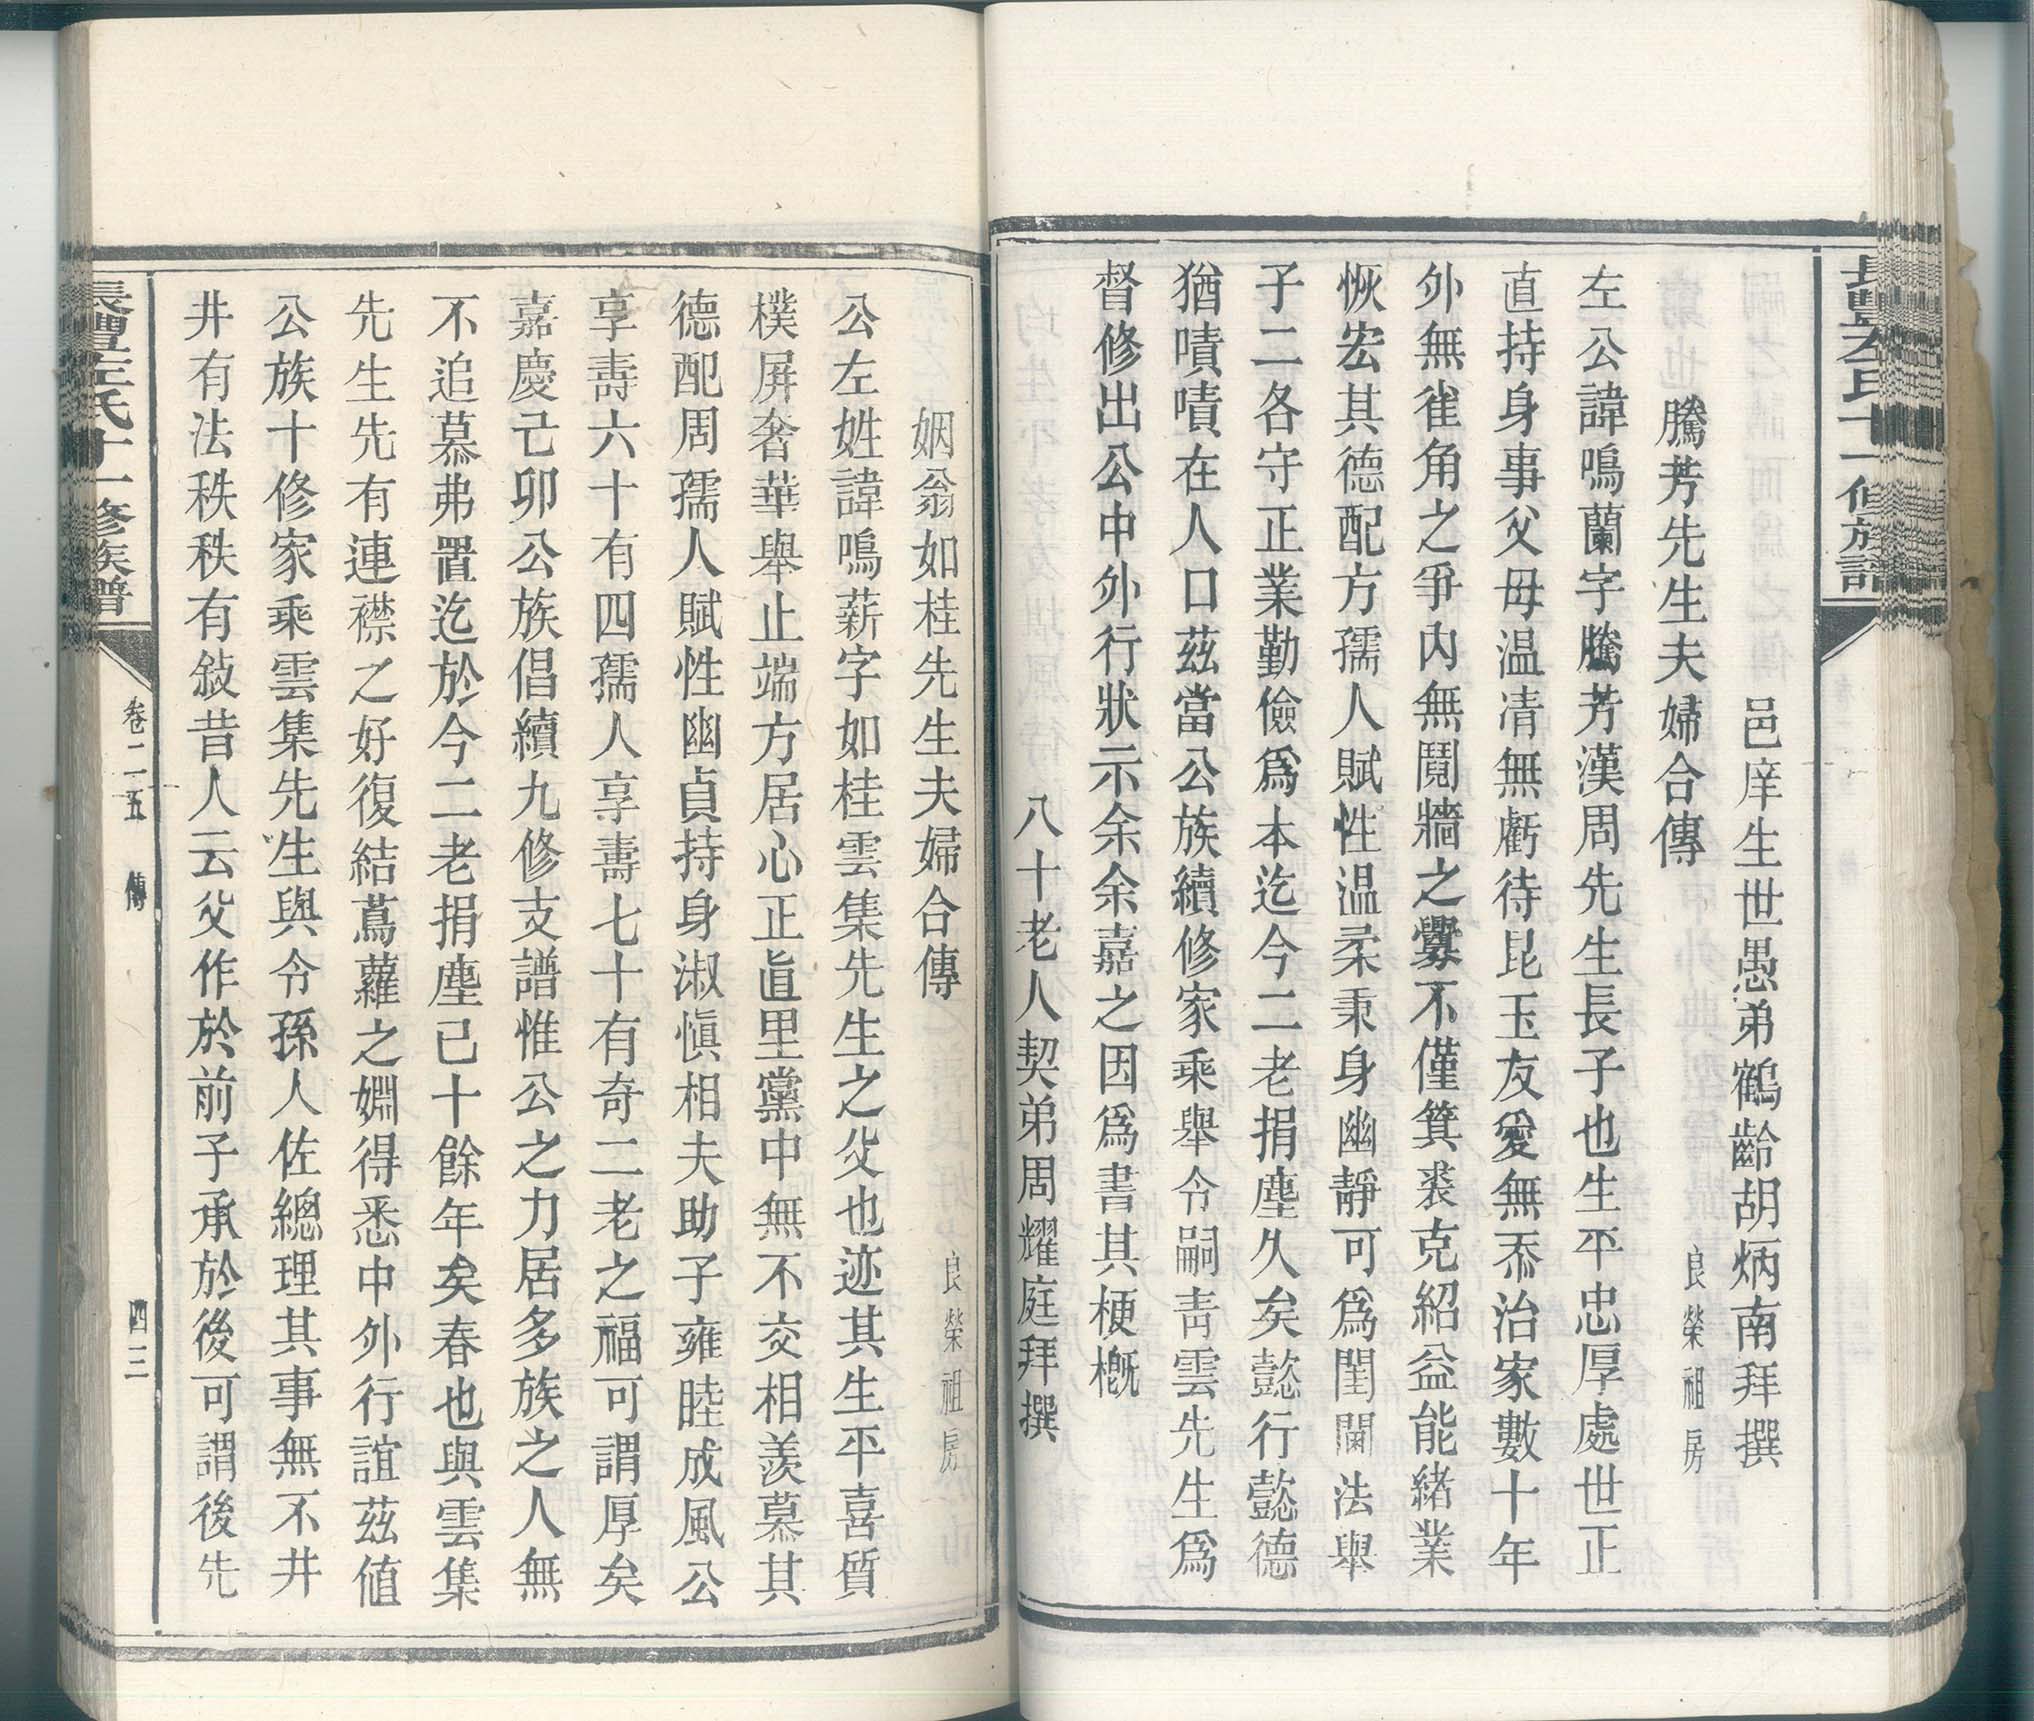 長豐左氏十一修族譜
邑庠生世愚弟鶴齡胡炳南拜撰
騰芳先生夫婦合傳 良榮祖房
左公諱鳴蘭字騰芳漢周先生長子也生平忠厚處世正
直持身事父母温凊無虧待昆玉友愛無忝治家數十年
外無雀角之爭內無鬩牆之釁不僅箕裘克紹益能緒業
恢宏其德配方孺人賦性温柔秉身幽靜可爲閨閫法舉
子二各守正業勤儉爲本迄今二老捐塵久矣懿行懿德
猶嘖嘖在人口茲當公族續修家乘舉令嗣青雲先生爲
督修出公中外行狀示余余嘉之因爲書其梗槪
八十老人契弟周耀庭拜撰
姻翁如桂先生夫婦合傳 良榮祖房
公左姓諱鳴薪字如桂雲集先生之父也迹其生平喜質
樸屏奢華舉止端方居心正直里黨中無不交相羨慕其
德配周孺人賦性幽貞持身淑愼相夫助子雍睦成風公
享壽六十有四孺人享壽七十有奇二老之福可謂厚矣
嘉慶己卯公族倡續九修支譜惟公之力居多族之人無
不追慕弗置迄於今二老捐塵已十餘年矣春也與雲集
先生先有連襟之好復結蔦蘿之婣得悉中外行誼茲値
公族十修家乘雲集先生與令孫人佐總理其事無不井
井有法秩秩有敍昔人云父作於前子承於後可謂後先
長豐左氏十一修族譜
卷二五 傳 四三